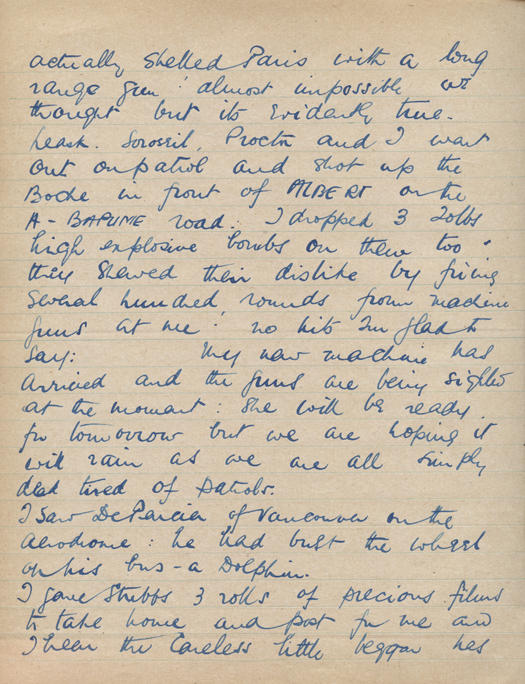 actually shelled Paris with a long
range gun : almost impossible we
thought but its evidently true.
Leask. Proctor and I went
out on patrol and shot up the
Boche in front of ALBERT on the
A - BAPUME road. I dropped 3 20lbs
high explosive bombs on them too .
they showed their dislike by firing
several hundred rounds from machine
guns at me : no hits I'm glad to
say: My new machine has
arrived and the guns are being sighted
at the moment : She will be ready
for tomorrow but we are hoping it
will rain as we are all simply
dead tired of patrols.
I saw of Vancouver on the
aerodrome : he had bust the wheel
of his bus - a Dolphin.
I gave Stubbs 3 rolls of precious films
to take home and post for me and
I hear the careless little beggar has